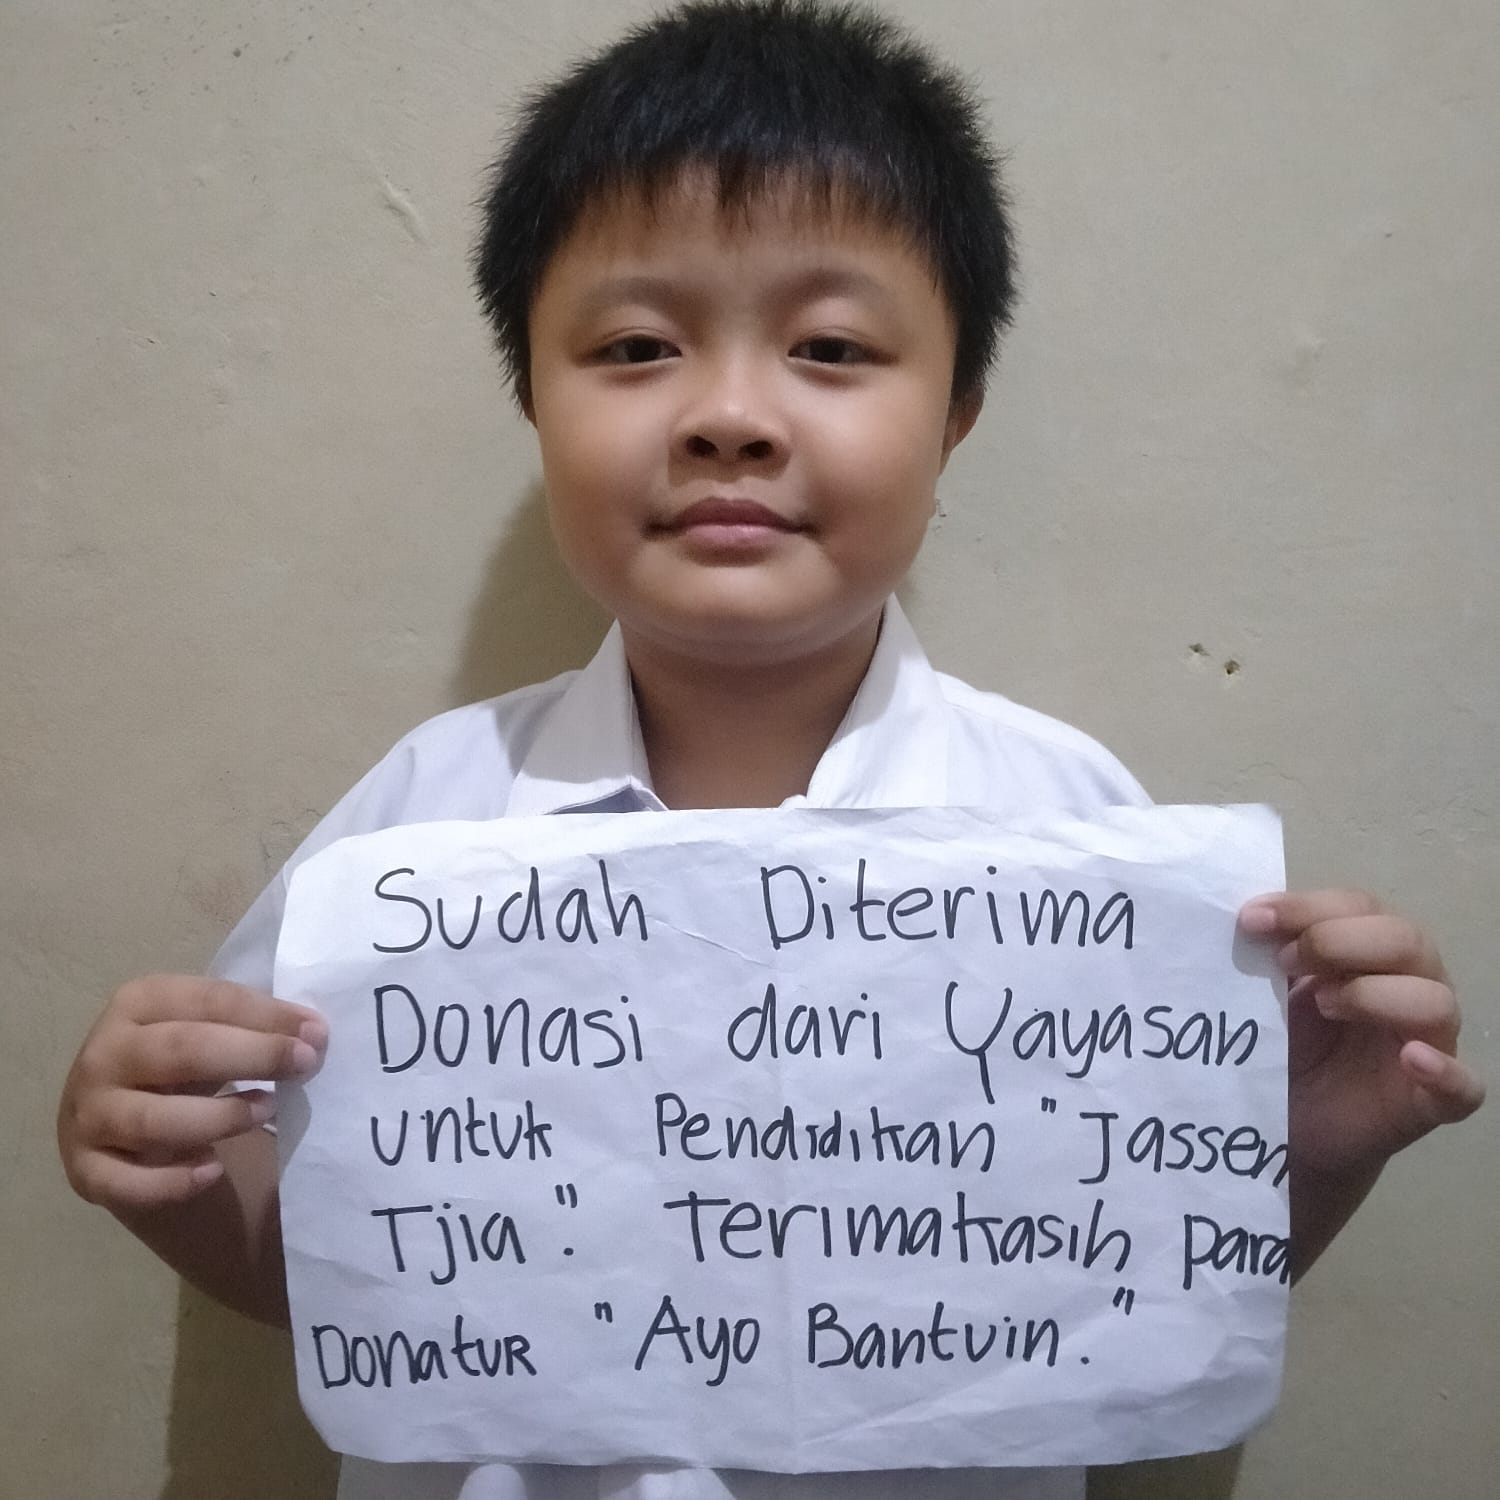 Sudah Diterima
Donasi dari Yayasan
untuk Pendidikan "Jassen
Tjia". Terimakasih para
Donatur "Ayo Bantuin."